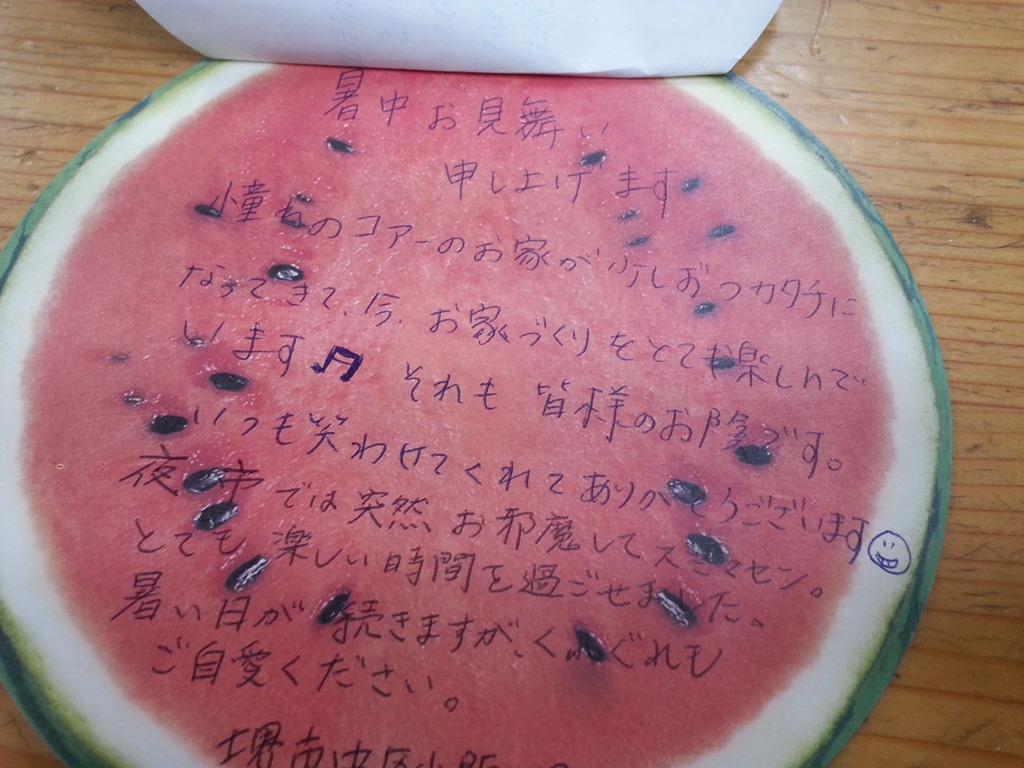 暑中お見舞い
申し上げます
憧れのコアーのお家が少しずつカタチに
なってきて、今、お家づくりをとても楽しんで
います♫ それも皆様のお陰です。
いつも笑わせてくれてありがとうございます
夜市では突然お邪魔してスミマセン。
とても楽しい時間を過ごせました。
暑い日が続きますが、くれぐれも
ご自愛ください。
堺市中区